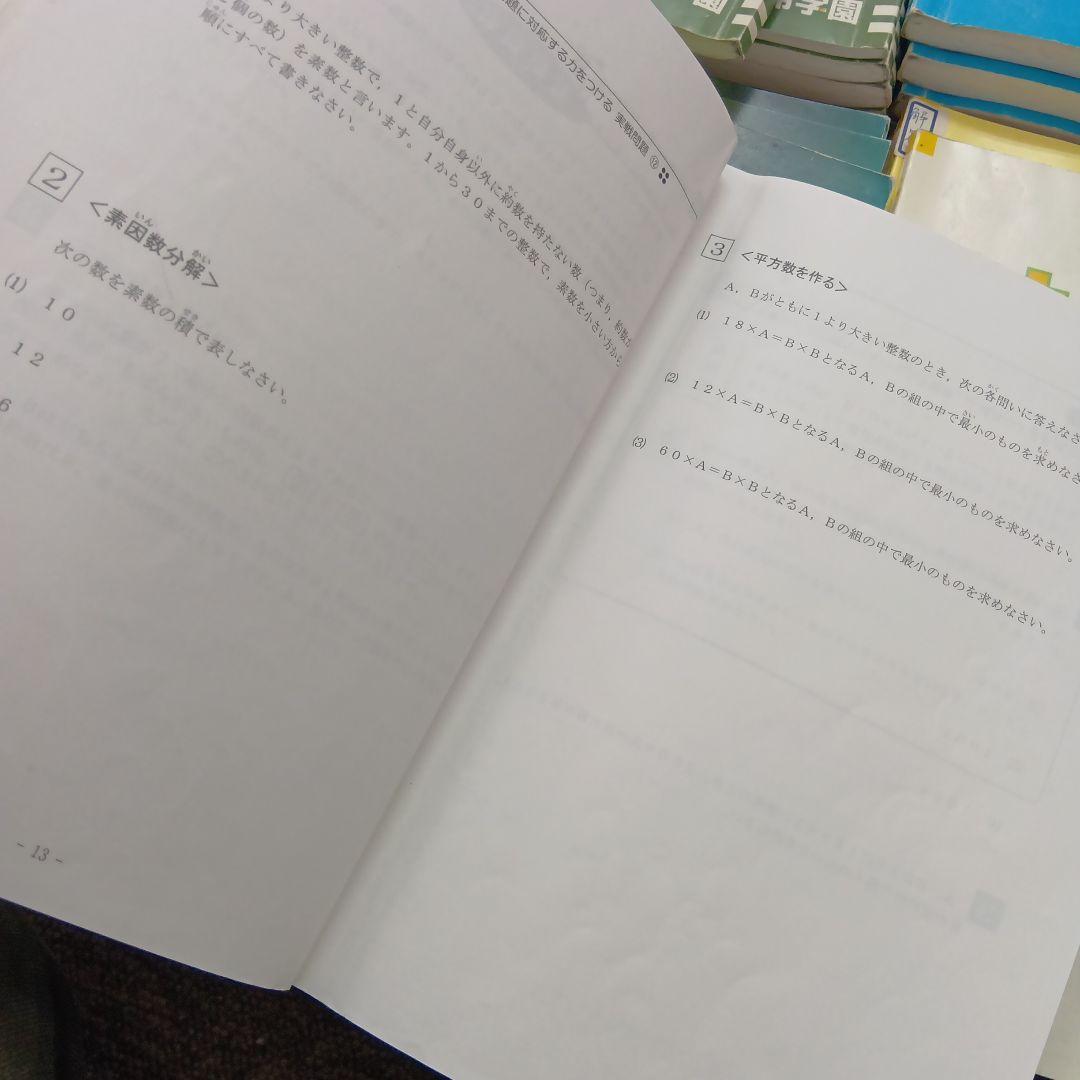 題に対応する力をつける 実戦問題⑫
より大きい整数で，1と自分自身以外に約数を持たない数（つまり，約数が
個の数）を素数と言います。1から30までの整数で，素数を小さい方から
順にすべて書きなさい。
2 <素因数分解>
次の数を素数の積で表しなさい。
(1) 10
12
6
- 13 -
3 <平方数を作る>
A，Bがともに1より大きい整数のとき，次の各問いに答えなさ
(1) 18×A＝B×BとなるA，Bの組の中で最小のものを求めなさ
(2) 12×A＝B×BとなるA，Bの組の中で最小のものを求めなさい。
(3) 60×A＝B×BとなるA，Bの組の中で最小のものを求めなさい。
学園
解